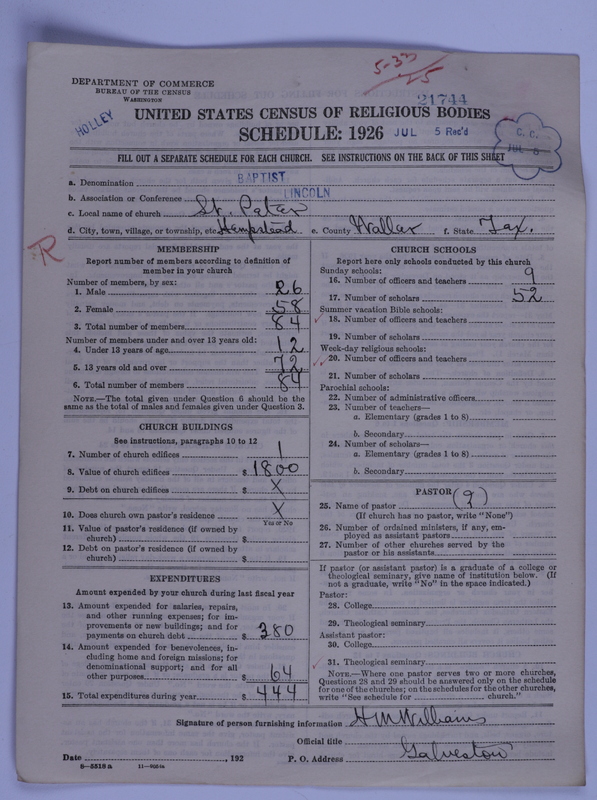 5-33
25
DEPARTMENT OF COMMERCE
BUREAU OF THE CENSUS
WASHINGTON
21744
HOLLEY
UNITED STATES CENSUS OF RELIGIOUS BODIES
SCHEDULE: 1926 JUL 5 Rec'd
C. C.
JUL 8
FILL OUT A SEPARATE SCHEDULE FOR EACH CHURCH. SEE INSTRUCTIONS ON THE BACK OF THIS SHEET
a. Denomination BAPTIST
b. Association or Conference LINCOLN
c. Local name of church St. Peter
d. City, town, village, or township, etc. Hempstead e. County Waller f. State Tex.
R
MEMBERSHIP
Report number of members according to definition of
member in your church
Number of members, by sex:
1. Male 26
2. Female 58
3. Total number of members 84
Number of members under and over 13 years old:
4. Under 13 years of age 12
5. 13 years old and over 72
6. Total number of members 84
NOTE.—The total given under Question 6 should be
the same as the total of males and females given under Question 3.
CHURCH BUILDINGS
See instructions, paragraphs 10 to 12
7. Number of church edifices 1
8. Value of church edifices $1800
9. Debt on church edifices $ X
10. Does church own pastor's residence X
Yes or No
11. Value of pastor's residence (if owned by
church) $
12. Debt on pastor's residence (if owned by
church) $
EXPENDITURES
Amount expended by your church during last fiscal year
13. Amount expended for salaries, repairs,
and other running expenses; for im-
provements or new buildings; and for
payments on church debt $380
14. Amount expended for benevolences, in-
cluding home and foreign missions; for
denominational support; and for all
other purposes $64
15. Total expenditures during year $444
CHURCH SCHOOLS
Report here only schools conducted by this church
Sunday schools:
16. Number of officers and teachers 9
17. Number of scholars 52
Summer vacation Bible schools:
18. Number of officers and teachers
19. Number of scholars
Week-day religious schools:
20. Number of officers and teachers
21. Number of scholars
Parochial schools:
22. Number of administrative officers
23. Number of teachers—
a. Elementary (grades 1 to 8)
b. Secondary
24. Number of scholars—
a. Elementary (grades 1 to 8)
b. Secondary
PASTOR
25. Name of pastor (?)
(If church has no pastor, write "None")
26. Number of ordained ministers, if any, em-
ployed as assistant pastors
27. Number of other churches served by the
pastor or his assistants
If pastor (or assistant pastor) is a graduate of a college or
theological seminary, give name of institution below. (If
not a graduate, write "No" in the space indicated.)
Pastor:
28. College
29. Theological seminary
Assistant pastor:
30. College
31. Theological seminary
NOTE.—Where one pastor serves two or more churches,
Questions 28 and 29 should be answered only on the schedule
for one of the churches; on the schedules for the other churches,
write "See schedule for church."
Signature of person furnishing information H M Williams
Official title
Date , 192 P. O. Address Galveston
6—5518a 11—9051a